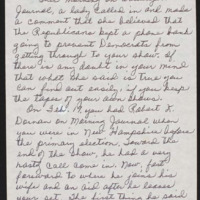 Journal, a lady called in and made
a comment that she believed that
the Republicans kept a phone bank
going to prevent Democrats from
getting through to your show. If
there is any doubt in your mind
that what she said is true you
can find out easily, if you keep
the tapes of your own shows.
On you had Robert K.
Dornan on Morning Journal when
you were in New Hampshire before
the primary election. Toward the
end of the show, he had a very
nasty call come in. Now, fast
forward to where he joins his
wife and an aid after he leaves
your set. The first thing he said